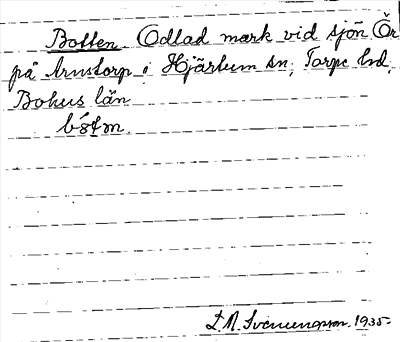 Botten Odlad mark vid sjön Ör
på Arnstorp i Hjärtum sn, Torpe hd,
Bohus län